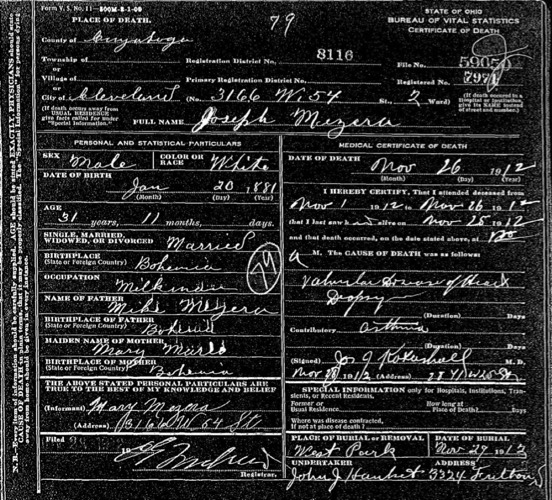 Form V. S. No. 11—500M-8-1-09
79
STATE OF OHIO
PLACE OF DEATH.
BUREAU OF VITAL STATISTICS
CERTIFICATE OF DEATH
County of Cuyahoga
Township of
Registration District No. 8116
File No. 59050
Village of
Primary Registration District No.
Registered No. 7971
or
City of Cleveland (No. 3166 W. 54 St., 2 Ward)
(If death occurs away from USUAL RESIDENCE give facts called for under "Special Information.")
(If death occurred in a Hospital or Institution give its NAME instead of street and number.)
FULL NAME Joseph Mezera
PERSONAL AND STATISTICAL PARTICULARS
MEDICAL CERTIFICATE OF DEATH
SEX Male
COLOR OR RACE White
DATE OF DEATH Nov 26 1912
(Month) (Day) (Year)
DATE OF BIRTH Jan 20 1881
(Month) (Day) (Year)
I HEREBY CERTIFY, That I attended deceased from
Nov 1 1912 to Nov 26 1912
AGE
31 years, 11 months, days.
that I last saw h alive on Nov 25 1912
and that death occurred, on the date stated above, at
SINGLE, MARRIED, WIDOWED, OR DIVORCED Married
A M. The CAUSE OF DEATH was as follows:
BIRTHPLACE
(State or Foreign Country) Bohemia
79
OCCUPATION Milkman
Valvular Disease of Heart
Dropsy
NAME OF FATHER Mike Mezera
(Duration) Days
BIRTHPLACE OF FATHER
(State or Foreign Country) Bohemia
Contributory Asthma
(Duration) Days
MAIDEN NAME OF MOTHER Mary
(Signed) Jos J M.D.
BIRTHPLACE OF MOTHER
(State or Foreign Country) Bohemia
Nov 1912 (Address)
THE ABOVE STATED PERSONAL PARTICULARS ARE TRUE TO THE BEST OF MY KNOWLEDGE AND BELIEF
SPECIAL INFORMATION only for Hospitals, Institutions, Transients, or Recent Residents.
(Informant) Mary Mezera
Former or Usual Residence
How long at Place of Death? Days
(Address) 3166 W 54 St
Where was disease contracted, if not at place of death?
Filed
PLACE OF BURIAL OR REMOVAL
DATE OF BURIAL
West Park
Nov. 29 1912
Registrar.
UNDERTAKER
ADDRESS
John J 3324 Fulton
N.B.—Every item of information should be carefully supplied. AGE should be stated EXACTLY. PHYSICIANS should state CAUSE OF DEATH in plain terms, that it may be properly classified. The "Special Information" for persons dying away from home should be given in every instance.